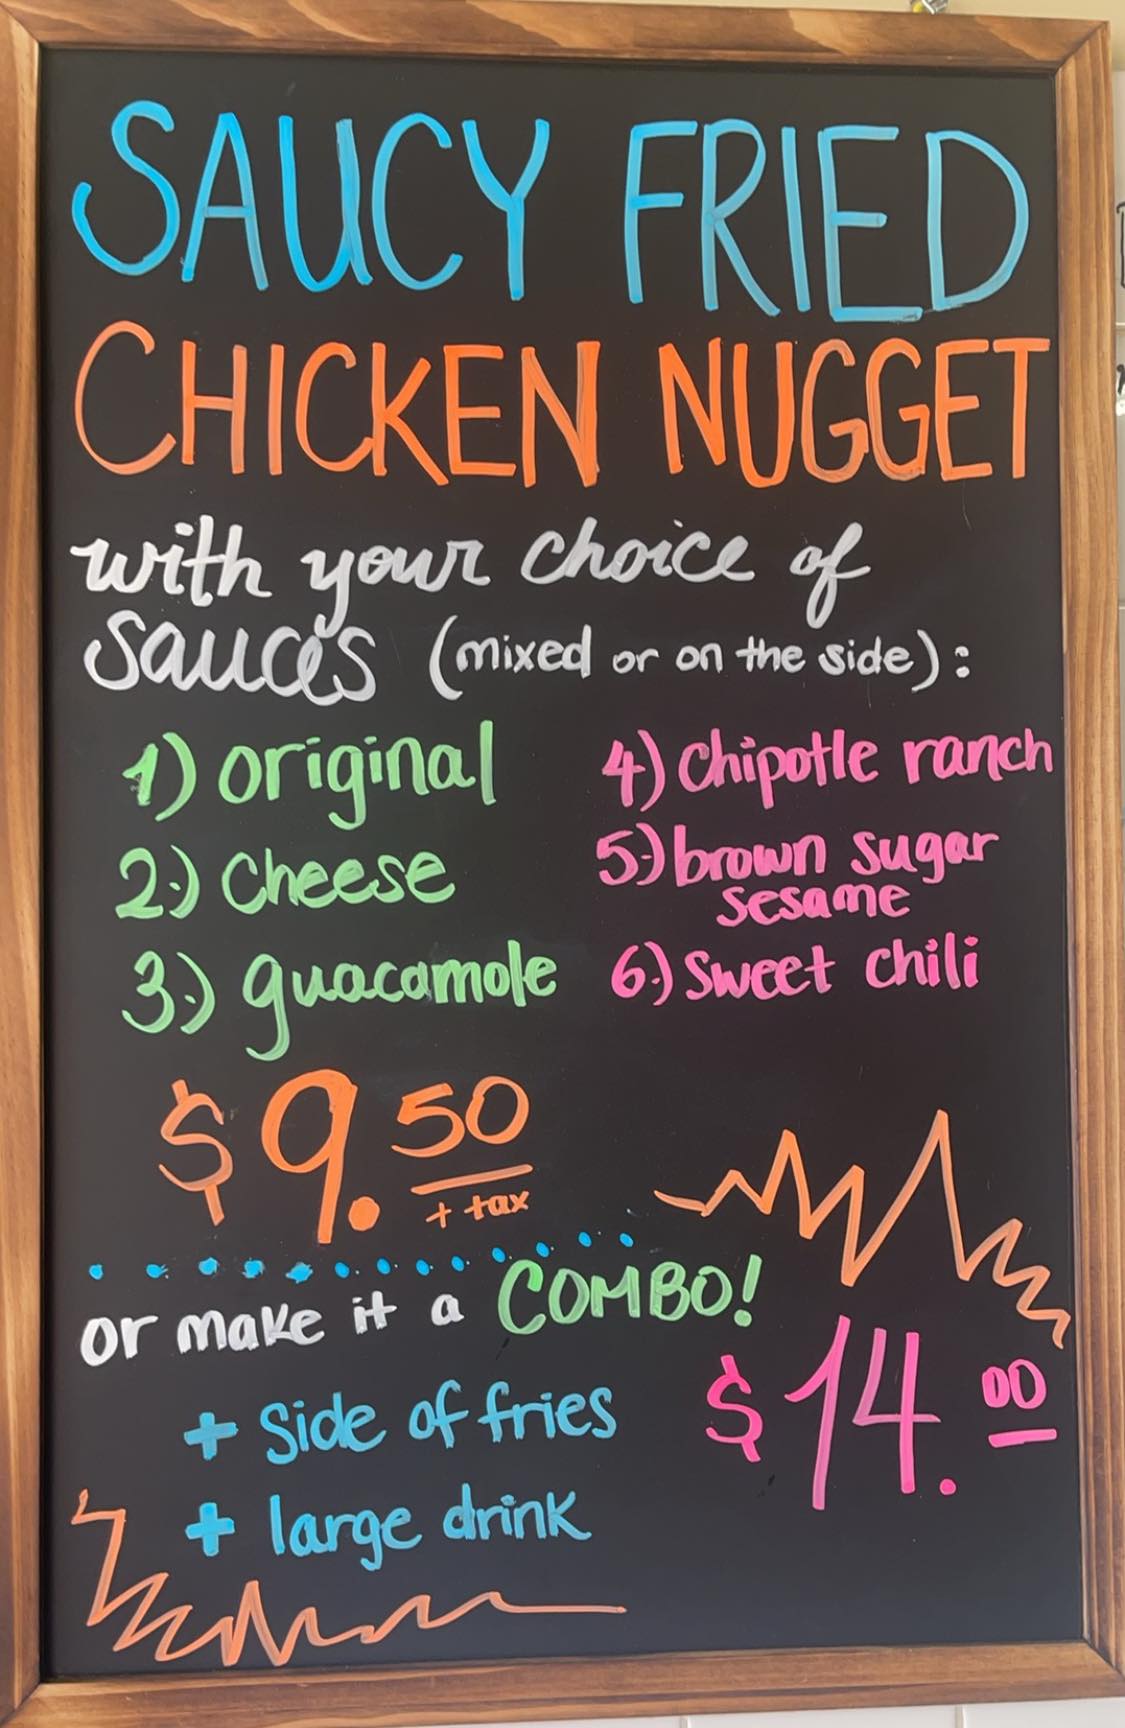 SAUCY FRIED
CHICKEN NUGGET
with your choice of
sauces (mixed or on the side):
1) original
2.) Cheese
3.) guacamole
4) Chipotle ranch
5.) brown sugar
sesame
6.) sweet chili
$9.50
+ tax
or make it a COMBO!
+ side of fries
+ large drink
$14.00